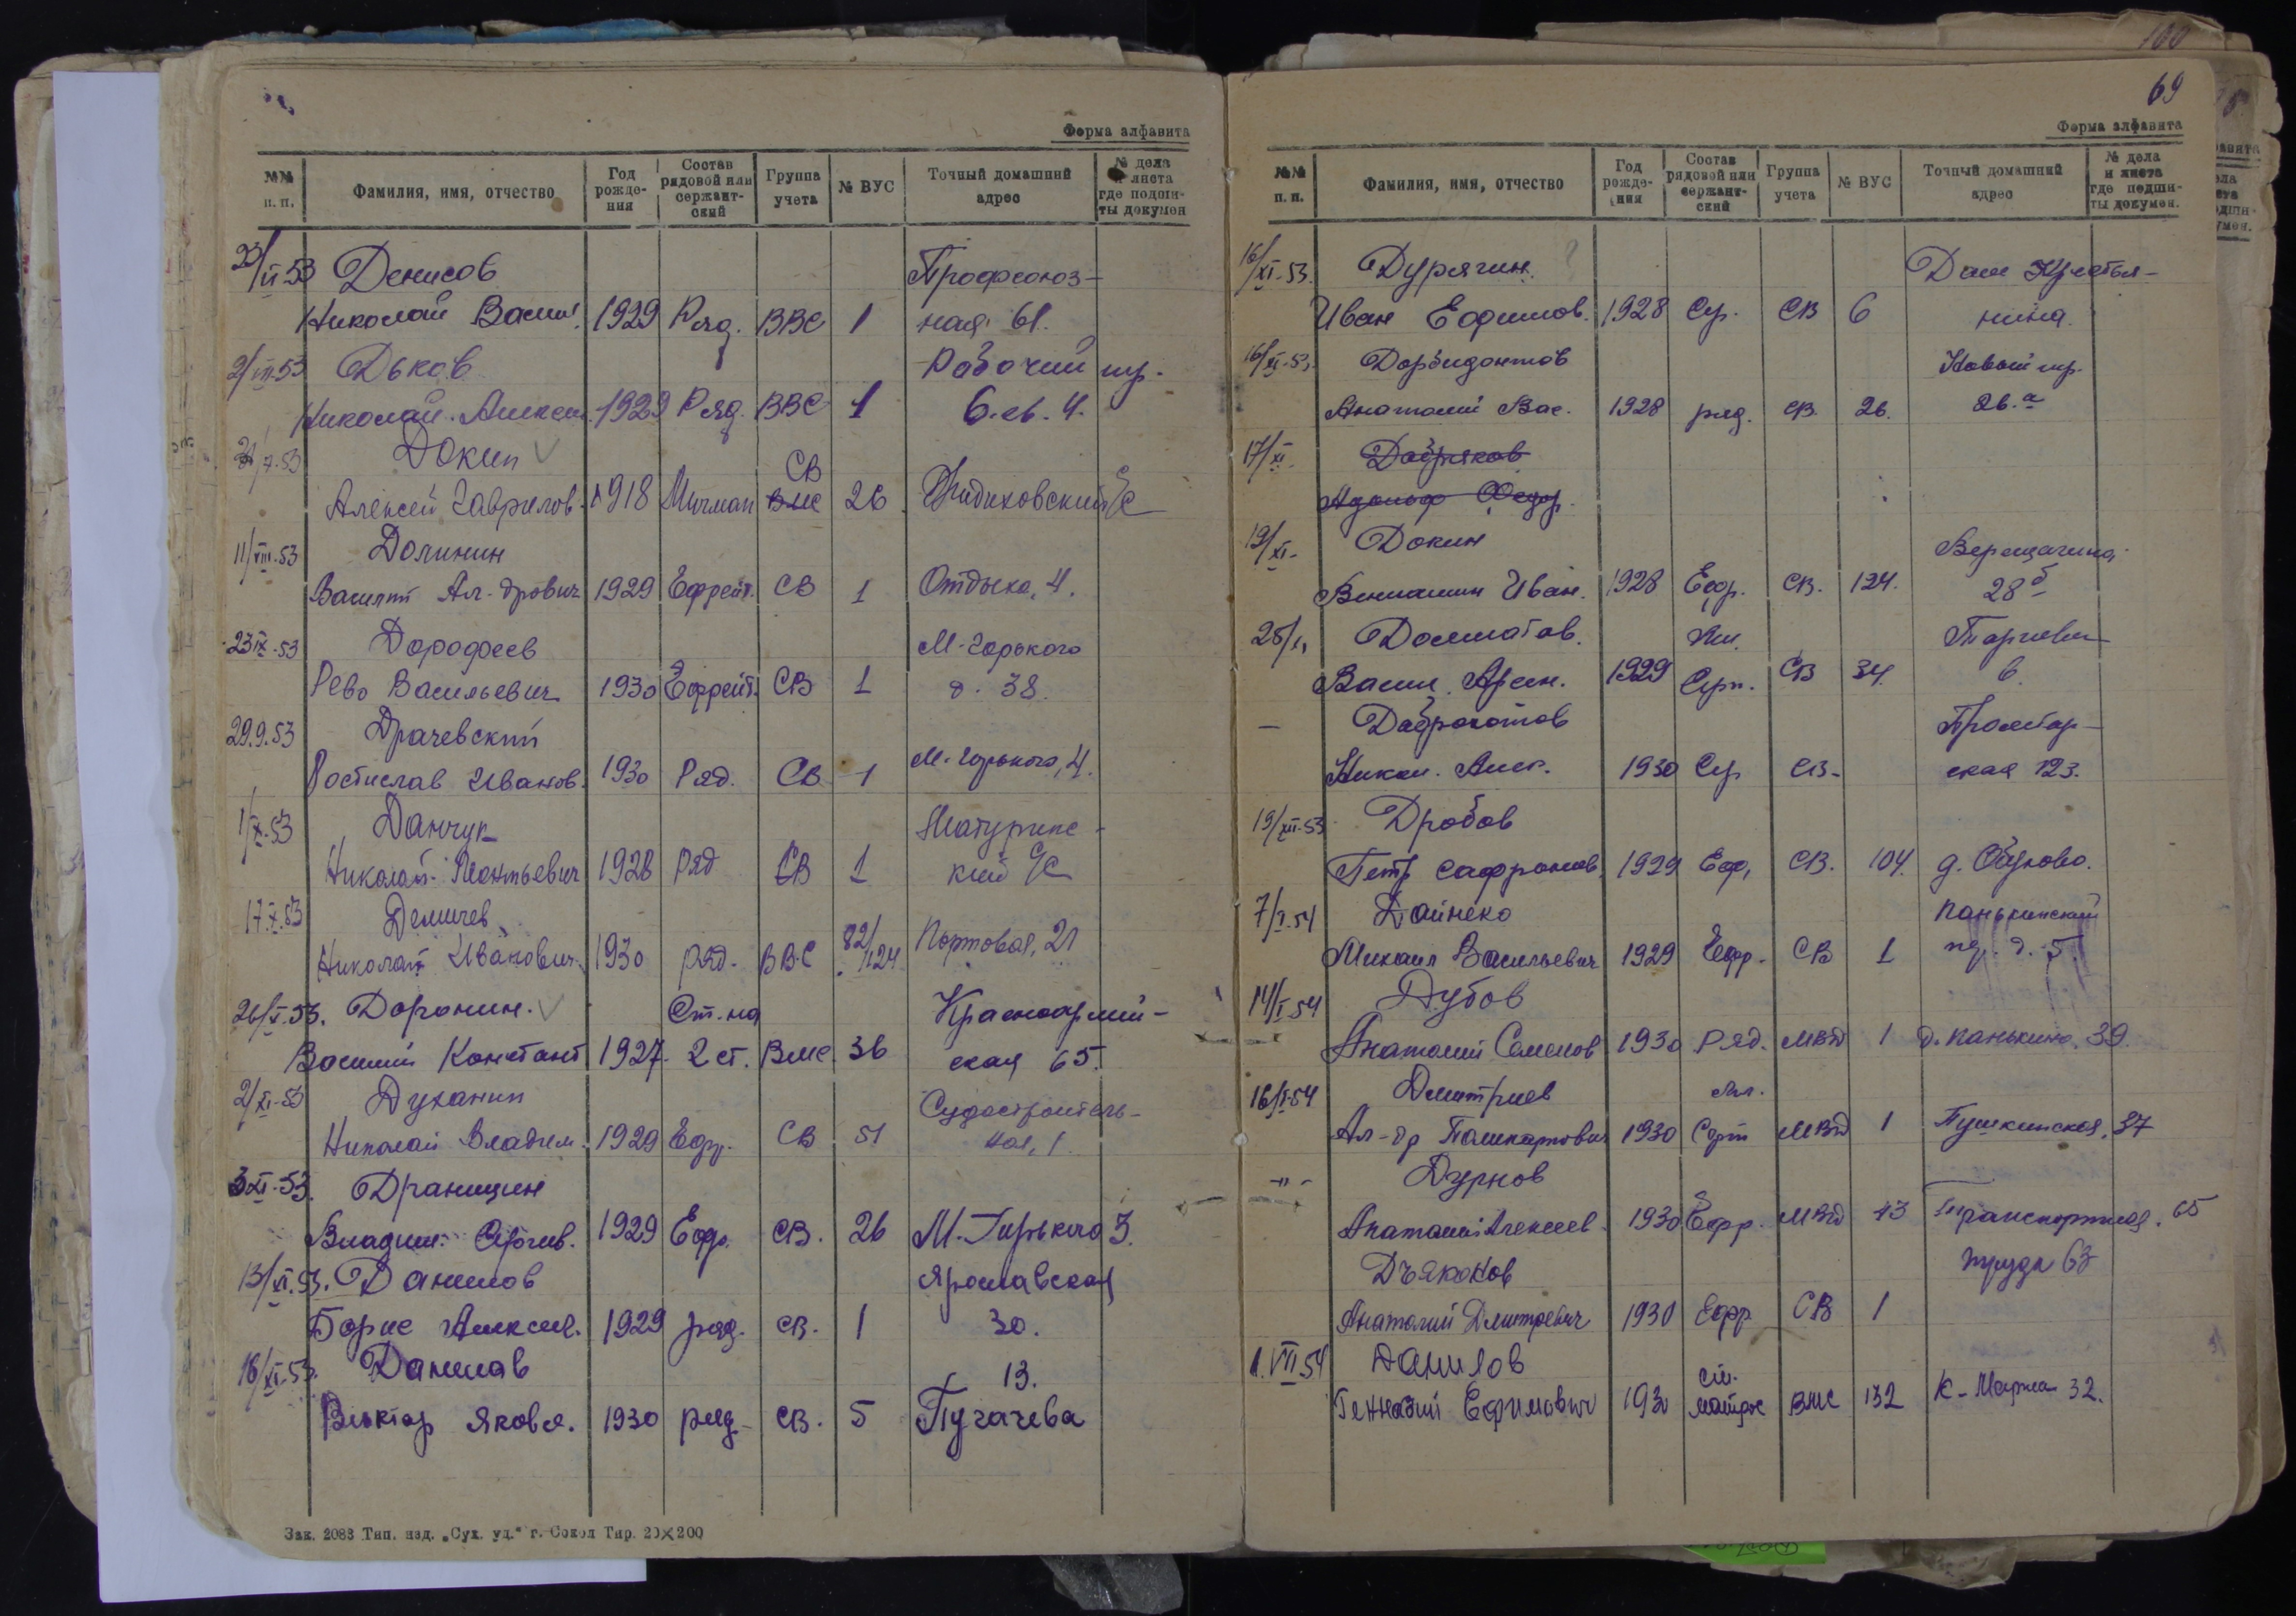 Форма алфавита
№№ п. п. Фамилия, имя, отчество Год рождения Состав рядовой или сержантский Группа учета № ВУС Точный домашний адрес № дела и листа где подшиты докумен
23/VI 53 Денисов Профсоюз-
Николай Васил. 1929 Ряд. ВВС 1 ная 61.
2/VIII 53 Дьков Рабочий пр.
Николай Алексеев. 1929 Ряд. ВВС 1 6. кв. 4.
Докин СВ
Алексей Гаврилов. 1918 Мичман ВМС 26 с/с
11/VIII-53 Долинин
Василий Ал-дрович 1929 Ефрейт. СВ 1 Отдыха, 4.
23 IX-53 Дорофеев М-Горького
Рево Васильевич 1930 Ефрейт. СВ 1 д. 38.
29.9.53 Драчевский
Ростислав Иванов. 1930 Ряд. СВ 1 М-Горького, 4.
1/X-53 Данчук Матуринс-
Николай Леонтьевич 1928 Ряд СВ 1 кий с/с
17.X.53 Демичев
Николай Иванович 1930 Ряд. ВВС 82/1124 Портовая, 21
26/X.53. Доронин. Ст.-на Красноармей-
Василий Констант 1927. 2 ст. Вмс 36 ская 65.
2/XI-53 Духанин Судостроитель-
Николай Владим. 1929 Ефр. СВ 51 ная, 1
3 XI-53. Драницин
Владим. Сергеев. 1929 Ефр. СВ. 26 М-Горького 3.
13/XI.53. Данилов Ярославская
Борис Алексеев. 1929 ряд. СВ. 1 30.
16/XI-53. Данилов 13.
Виктор Яковл. 1930 ряд. СВ. 5 Пугачева
Зак. 2083 Тип. изд. „Сух. уд.“ г. Сокол Тир. 20×200
100
69
Форма алфавита
№№ п. п. Фамилия, имя, отчество Год рождения Состав рядовой или сержантский Группа учета № ВУС Точный домашний адрес № дела и листа где подшиты докумен.
16/XI-53. Дурягин. Дом Крестья-
Иван Ефимов. 1928 Сер. СВ 6 нина.
16/XI-53. Дорбидонтов Новый пр.
Анатолий Вас. 1928 ряд. СВ. 26. 26.а
17/XI- Добряков
Адольф Федор.
19/XI- Докин Верещагина,
Вениамин Иван. 1928 Ефр. СВ. 124. 28б
25/XI Долматов. Мл.
Васил. Арсен. 1929 Серж. СВ 34. 6.
— Доброхотов Пролетар-
Никол. Алек. 1930 Сер СВ- ская 123.
19/XII-53 Дробов
Петр Сафронов. 1929 Еф, СВ. 104. д. Обухово.
7/I.54 Дайнеко Панькинский
Михаил Васильевич 1929 Ефр. СВ 1 пер. д. 5
14/I 54 Дубов
Анатолий Семенов 1930 Ряд. МВД 1 д. Панькино, 39.
16/I-54 Дмитриев Мл.
Ал-др Поликарпович 1930 Серж МВД 1 Пушкинская, 37
-"- Дурнов
Анатолий Алексеев. 1930 Ефр. МВД 43 Транспортная. 65
Дъяконов труда 63
Анатолий Дмитревич 1930 Ефр СВ 1
1.VII 54 Данилов ст.
Геннадий Ефимович 1930 матрос ВМС 132 К-Маркса 32.